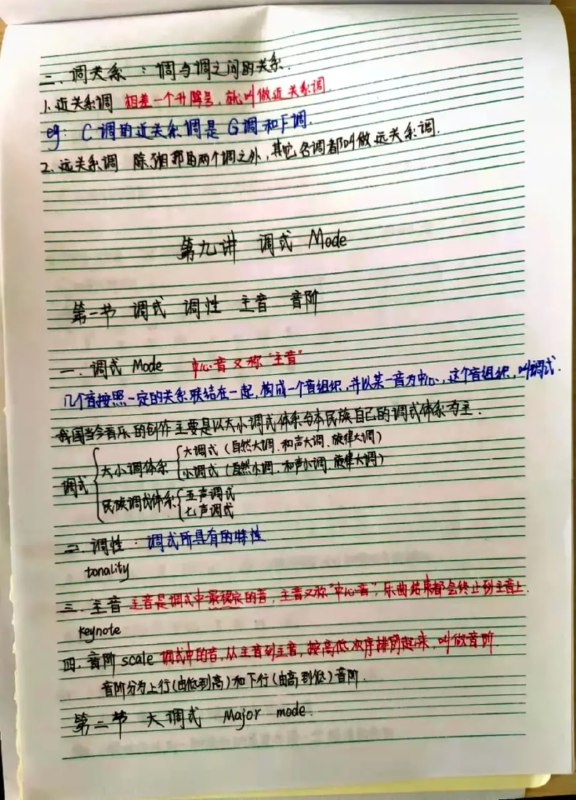 二、调关系：调与调之间的关系.
1.近关系调 相差一个升降号,就叫做近关系调
eg: C调的近关系调是G调和F调.
2.远关系调 除相邻的两个调之外,其它各调都叫做远关系调.
第九讲 调式 Mode
第一节 调式 调性 主音 音阶
一.调式 Mode 中心音又称"主音"
几个音按照一定的关系联结在一起,构成一个音组织,并以某一音为中心,这个音组织,叫调式.
我国当今音乐的创作主要是以大小调式体系与本民族自己的调式体系为主.
大调式(自然大调.和声大调.旋律大调)
调式 大小调体系
小调式(自然小调.和声小调.旋律大调)
民族调式体系 五声调式
七声调式
二.调性:调式所具有的特性
tonality
三.主音 主音是调式中最稳定的音,主音又称"中心音",乐曲结束都会终止到主音上.
keynote
四.音阶 scale 调式中的音,从主音到主音,按高低次序排列起来,叫做音阶
音阶分为上行(由低到高)和下行(由高到低)音阶.
第二节 大调式 Major mode.